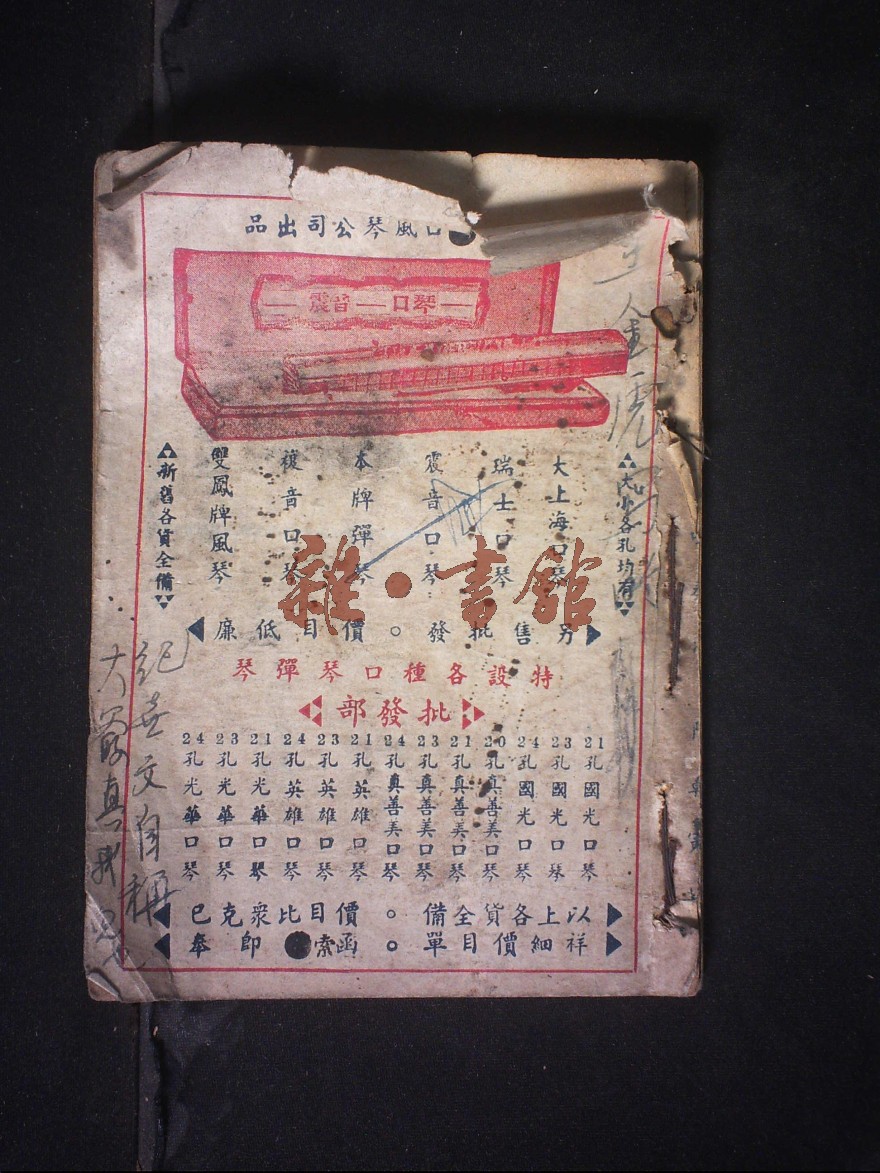 口風琴公司出品
—琴口—音震—
大小各孔均有
大上海口琴
瑞士口琴
震音口琴
本牌彈琴
複音口琴
雙鳳牌風琴
新舊各貨全備
另售批發。價目低廉
特設各種口琴彈琴
批發部
21孔國光口琴
23孔國光口琴
24孔國光口琴
20孔真善美口琴
21孔真善美口琴
23孔真善美口琴
24孔真善美口琴
21孔英雄口琴
23孔英雄口琴
24孔英雄口琴
21孔光華口琴
23孔光華口琴
24孔光華口琴
以上各貨全備。價目比衆克已
祥細價目單。函索即奉
雜·書館